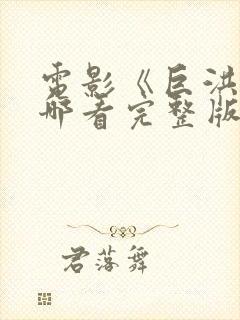 電影《巨洪
哪看完整版
君落舞